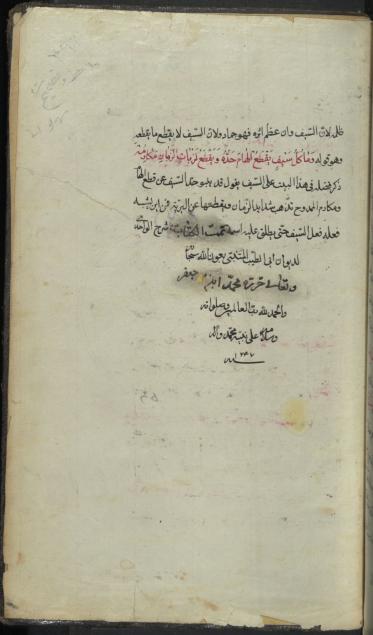 ظلم لان السيف وان عظم اثره فهو جماد ولان السيف لا يقطع ما يقطعه
وهو قوله وَمَا كُلُّ سَيْفٍ يَقْطَعُ الْهَامَ حَدُّهُ وَتَقْطَعُ لَزْبَاتِ الزَّمَانِ مَكَارِمُهُ
ذكر فضله في هذا البيت على السيف يقول قد ينبو حد السيف عن قطع الهام
ومكارم الممدوح تذهب شدايد الزمان ويقطعها عن البرية فمن اين يشبه
فعله فعل السيف حتى يطلق عليه اسمه تمت الكتاب شرح الواحدي
لديوان ابى الطيب المتنبى بعون الله سبحانه
وتعالى حرره محمد جعفر
والحمد لله رب العالمين وصلواته
وسلامه على نبيه محمد وآله